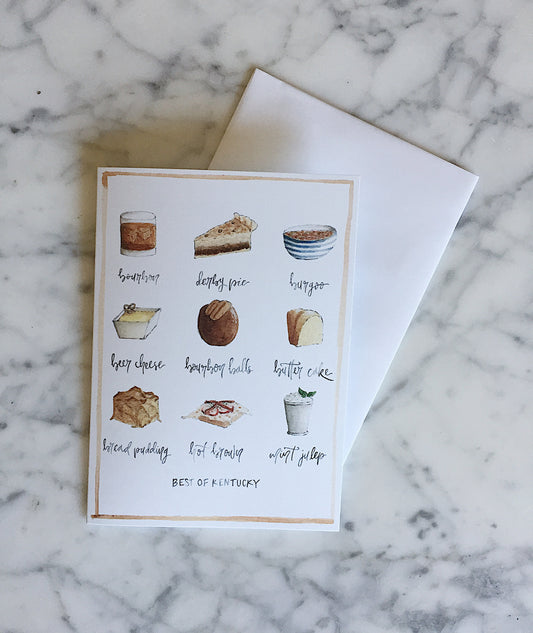 bourbon derby pie burgoo
beer cheese bourbon balls butter cake
bread pudding hot brown mint julep
BEST OF KENTUCKY